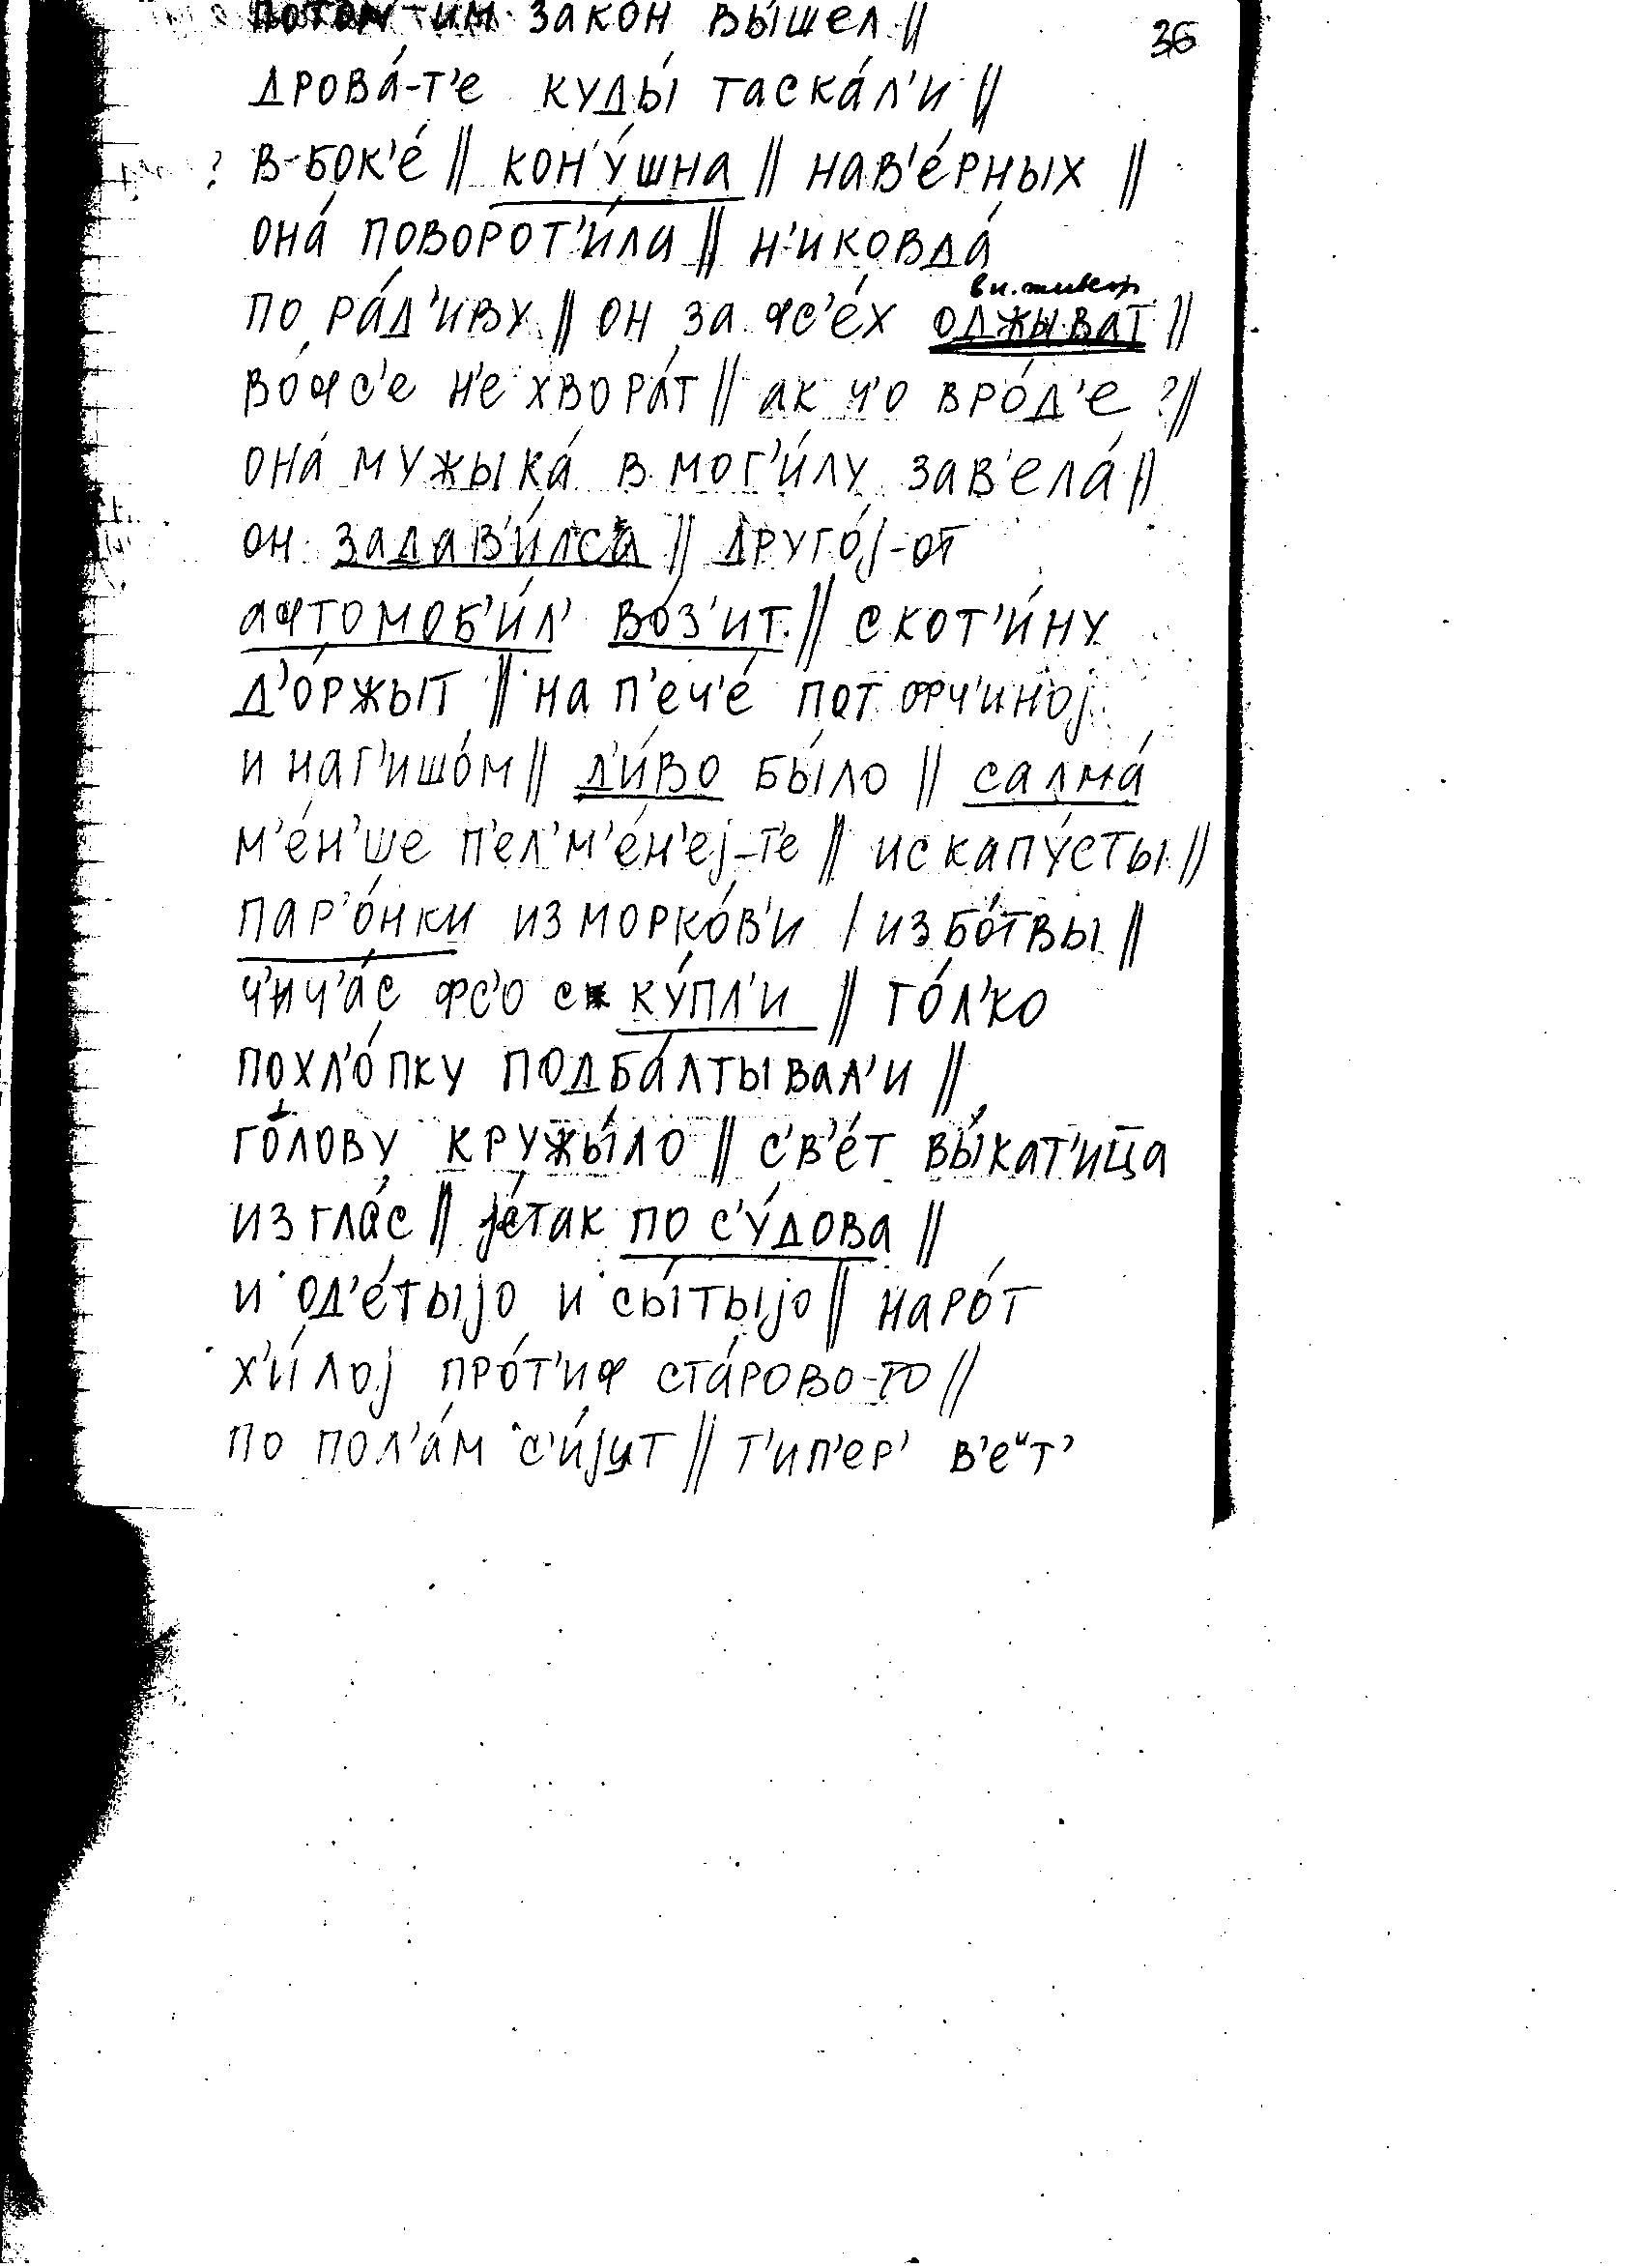 потом им зако́н вы́шел //
36
дрова́-т'е куды́ таска́л'и //
? в-бок'е́ // кон'у́шна // нав'е́рных //
она́ поворот'и́ла // н'иковда́
по ра́д'иву // он за фс'е́х оджыват //
во́фс'е н'е хвора́т // ак ч'о вро́д'е ? //
она́ мужыка́ в мог'и́лу зав'ела́ //
он задав'и́лса // друго́j-от
афтомоб'и́л' во́з'ит // скот'и́ну
д'о́ржыт // на п'еч'е́ пот офч'иноj
и наг'ишо́м // д'и́во бы́ло // салма́
м'е́н'ше п'ел'м'е́н'еj-т'е // ис капу́сты //
пар'о́нки из морко́в'и / из бо́твы //
ч'ич'а́с фс'о с ку́пл'и // то́л'ко
похл'о́пку подба́лтывал'и //
го́лову кружы́ло // с'в'е́т вы́кат'ица
из гла́с // jе́так по с'у́дова //
и од'е́тыjо и сы́тыjо // наро́т
х'и́лоj про́т'иф ста́рово-то //
по пол'а́м с'и́jут // т'ип'ер' в'еит'